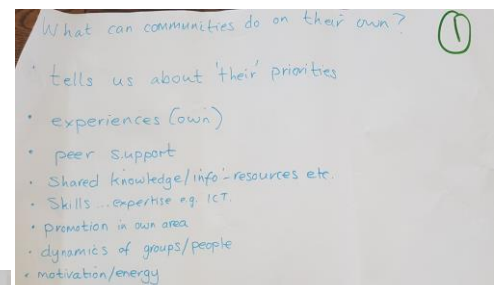 What can communities do on their own?
①
· tells us about 'their' priorities
· experiences (own)
· peer support
· Shared knowledge/info - resources etc.
· Skills ... expertise eg. ICT.
· promotion in own area
· dynamics of groups/people
· motivation/energy